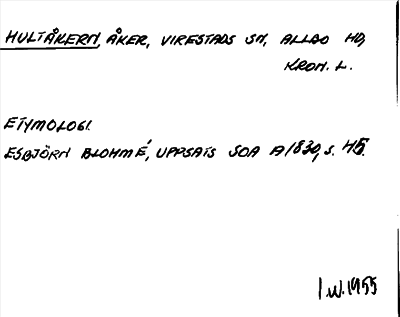 HULTÅKERN, ÅKER, VIRESTADS SN, ALLBO HD,
KRON. L.
ETYMOLOGI.
ESBJÖRN BLOHMÉ, UPPSATS SOA A1830, S. 45.
I.W. 1955